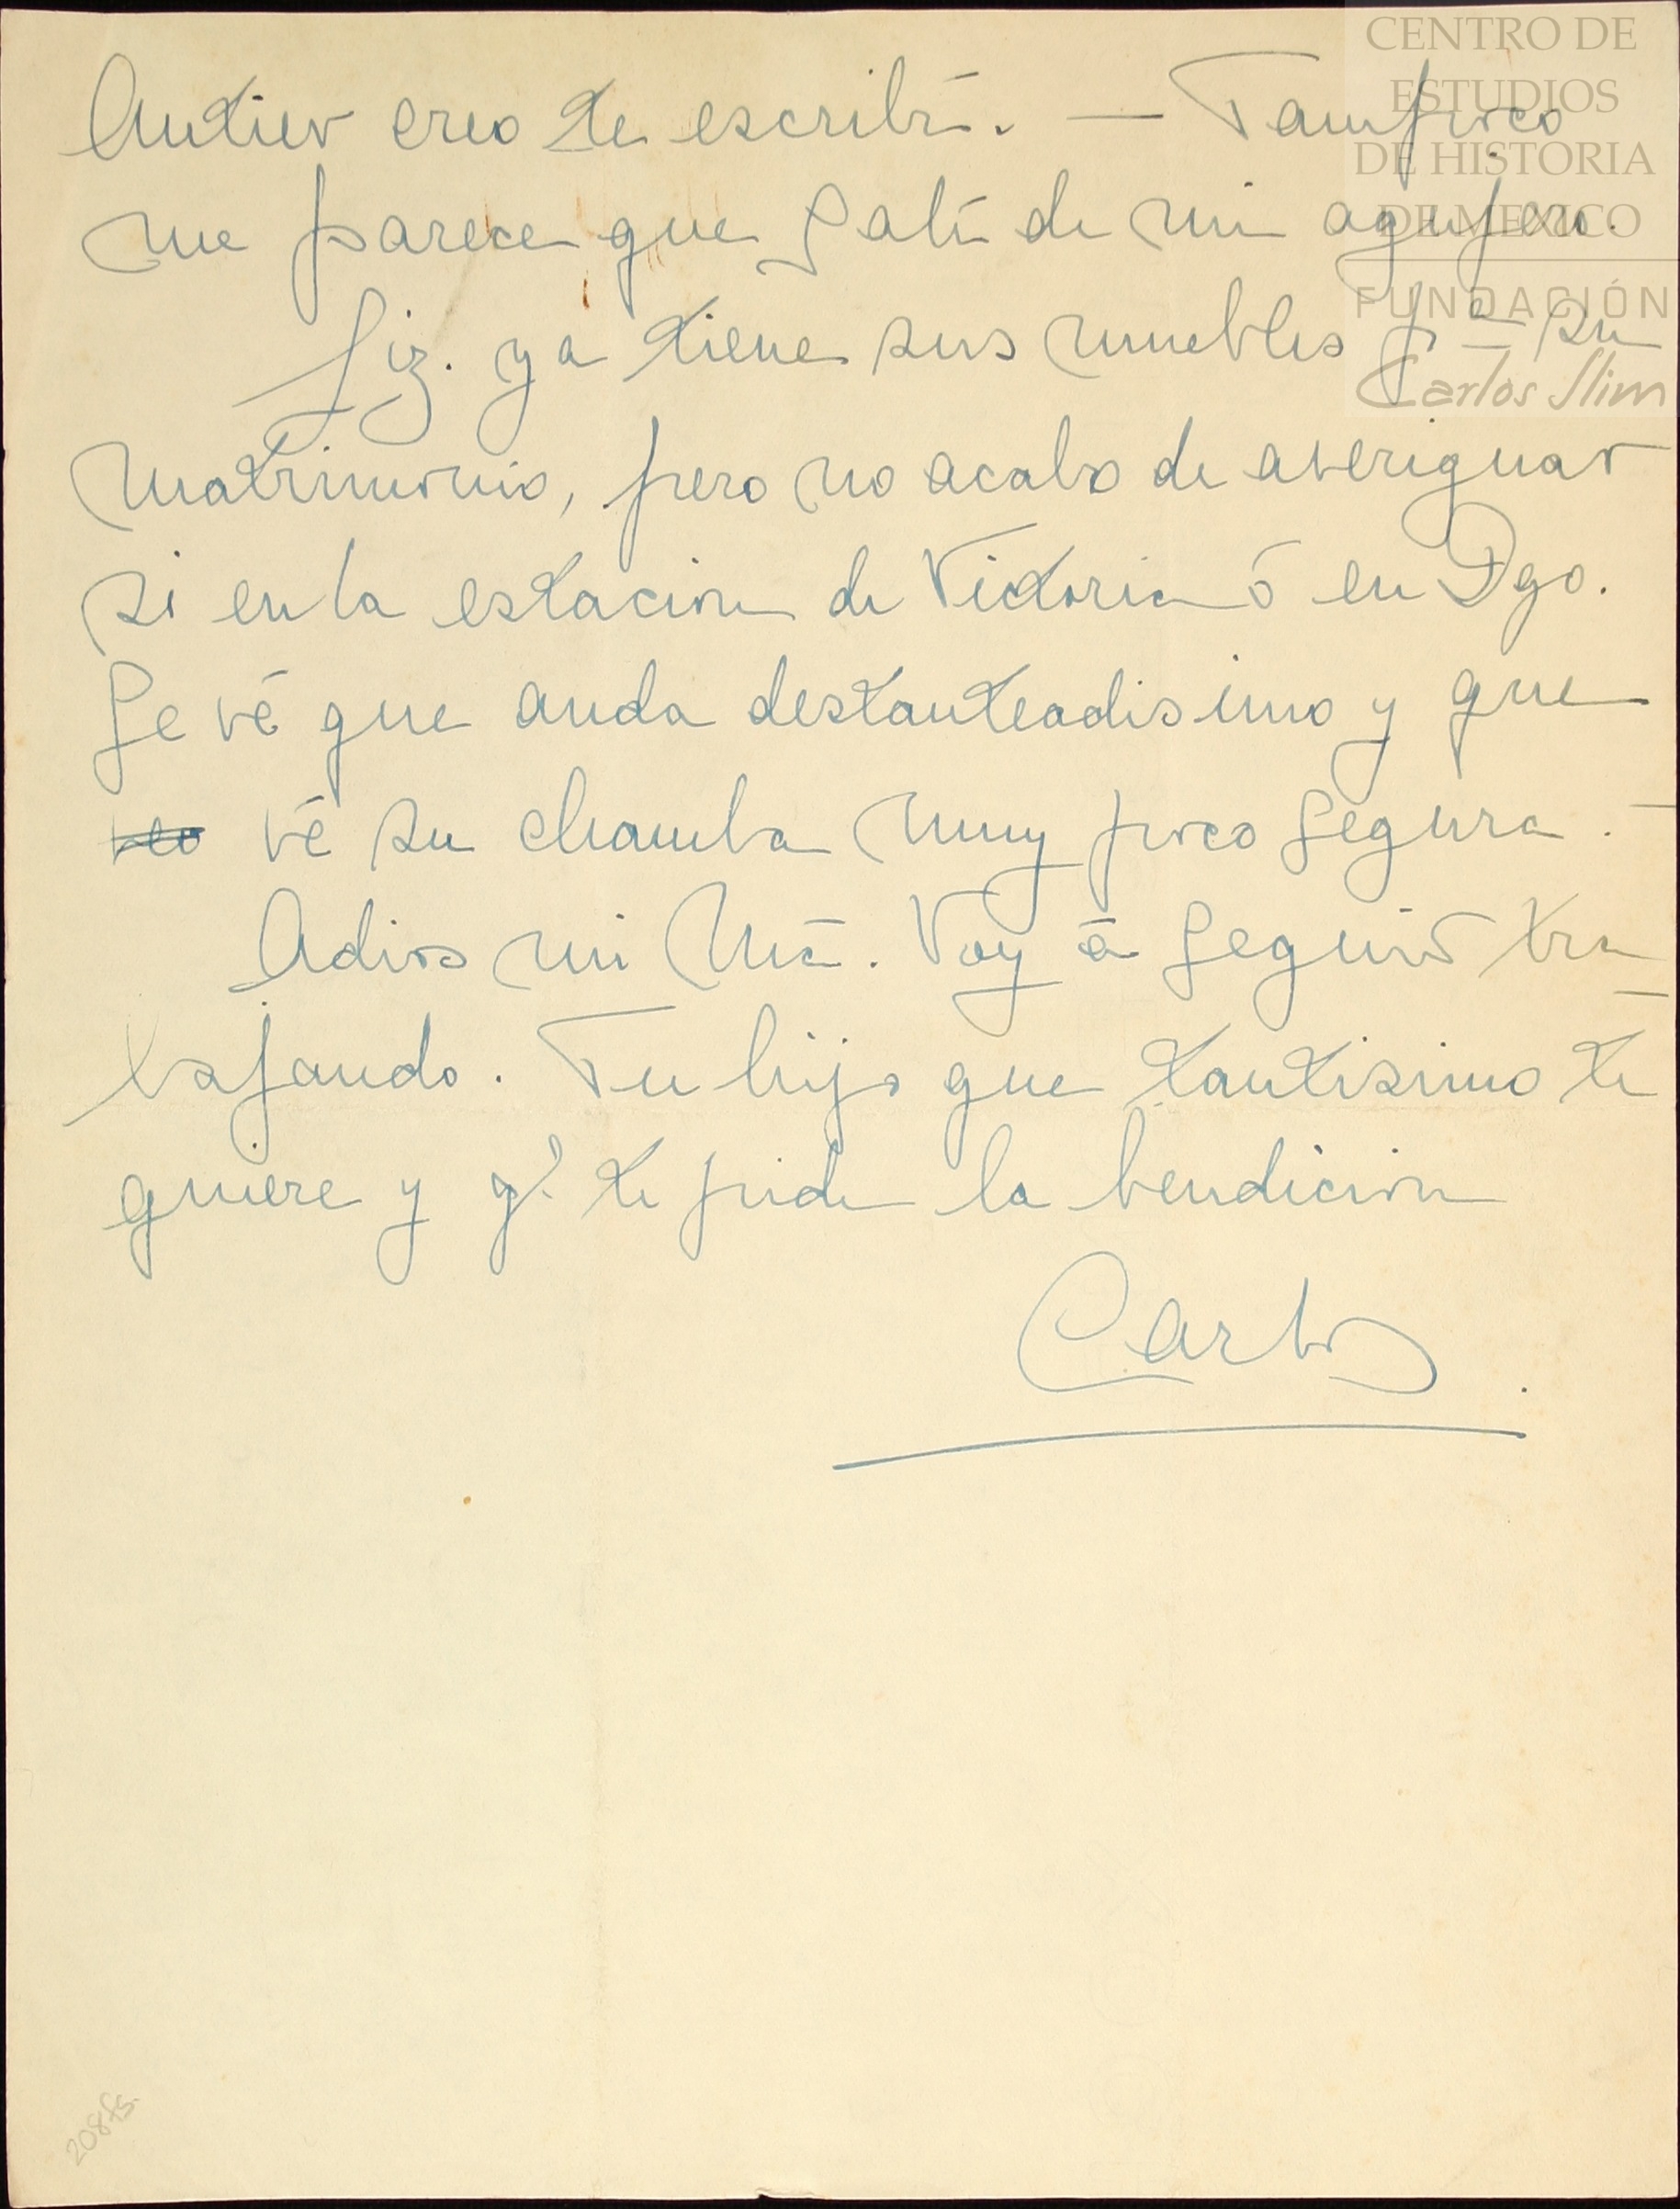 CENTRO DE
ESTUDIOS
DE HISTORIA
DE MEXICO
FUNDACIÓN
Carlos Slim
Antier creo te escribí. — Tampoco
me parece que salí de mi agujero.
Liz. ya tiene sus muebles pª su
matrimonio, pero no acabo de averiguar
si en la estacion de Victoria ó en Dgo.
Se vé que anda destanteadisimo y que
veo vé su chamba muy poco segura. —
Adios mi Má. Voy á seguir tra
bajando. Tu hijo que tantisimo te
quiere y q. te pide la bendicion
Carlos.
208fs.